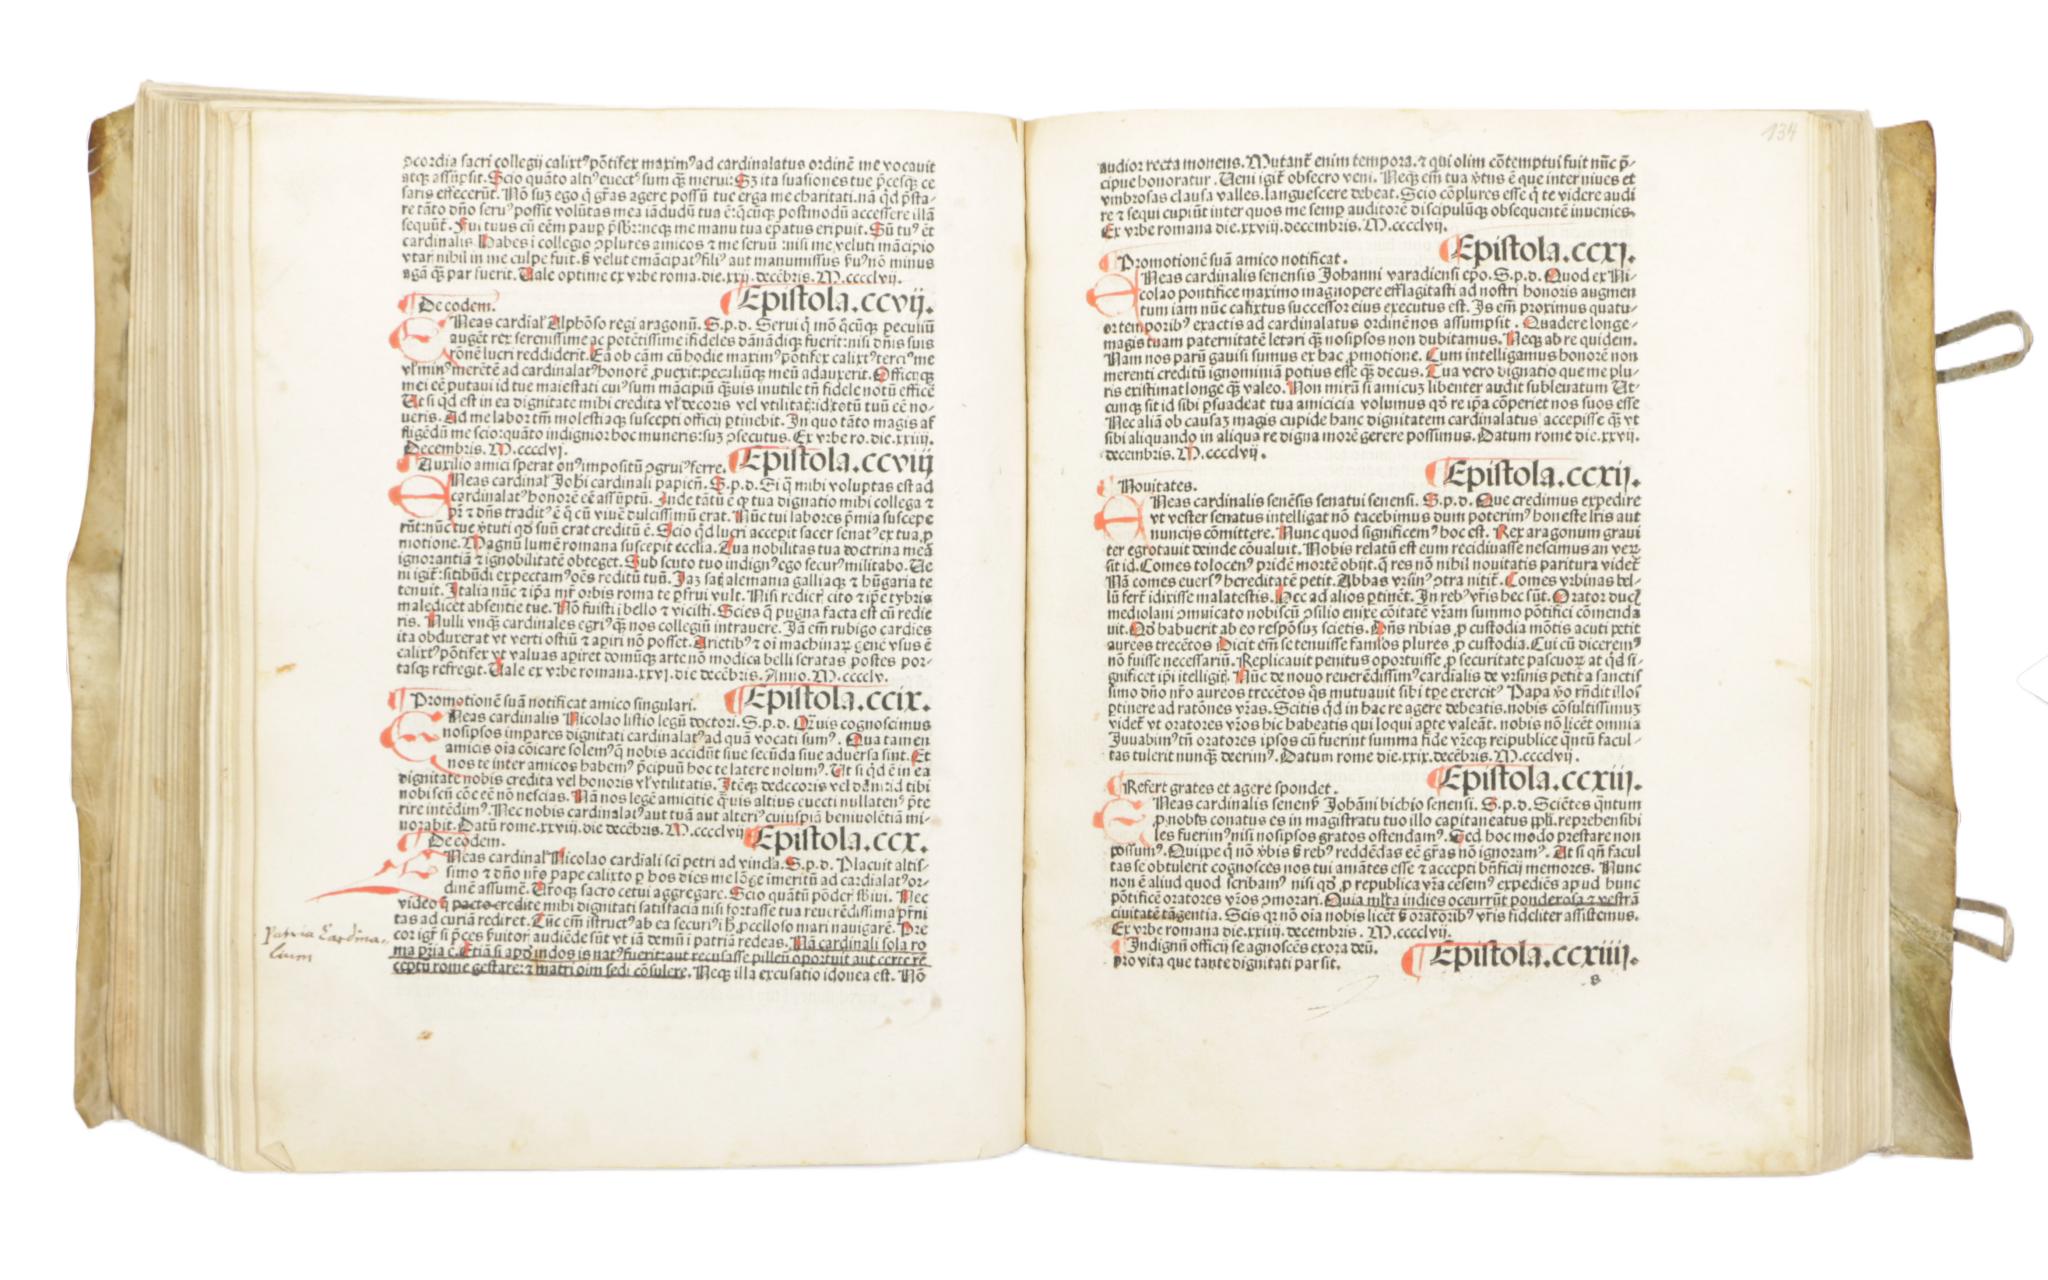 ɔcordia sacri collegij calixtꝰ põtifex maximꝰ ad cardinalatus ordinẽ me vocauit
atqꝫ assũpsit. Scio quãto altiꝰ euectꝰ sum qꝫ̃ merui: Sꝫ ita suasiones tue p̃cesqꝫ ce
saris effecerũt. Nõ suꝫ ego q̃ gr̃as agere possũ tue erga me charitati. nã qd̃ p̃sta-
re tãto dño seruꝰ possit volũtas mea iãdudũ tua ẽ: q̃cũqꝫ postmodũ accessere illã
sequũt̃. Fui tuus cũ eẽm paup p̃sbr̃: necqꝫ me manu tua ep̃atus eripuit. Sũ tuꝰ et
cardinalis. Habes i collegio ɔplures amicos ⁊ me seruũ: nisi me veluti mãcipio
vtar̃ nihil in me culpe fuit. s̃ velut emãcipatꝰ filiꝰ aut manumissus s̃uꝰ nõ minus
agã qꝫ̃ par fuerit. Vale optime ex vrbe roma. die. xxij. decẽbris. M. cccclvij.
De eodem. Epistola.ccvij.
Neas cardiał Alphõso regi aragonũ. S. p. d. Serui q̃ mõ q̃cũqꝫ peculiũ
augẽt rex serenissime ac potẽtissime ifideles dãnãdiqꝫ fuerit: nisi dñis suis
rõnẽ lucri reddiderit. Ea ob cãm cũ hodie maximꝰ põtifex calixtꝰ terciꝰ me
vl̃ minꝰ merẽtẽ ad cardinalatꝰ honorẽ ꝓuexit: peculiũqꝫ meũ adauxerit. Officijqꝫ
mei eẽ putaui id tue maiestati cuiꝰ sum mãcipiũ qꝫ̃uis inutile tñ fidele notũ efficẽ
Ut si qd̃ est in ea dignitate mihi credita vl̃ decoris vel vtilitat̃: id totũ tuũ eẽ no-
ueris. Ad me labor tm̃ molestiaqꝫ suscepti officij ptinebit. In quo tãto magis af
fligẽdũ me scio: quãto indignior hoc muneris: suꝫ ɔsecutus. Ex vrbe ro. die. xxiij.
Decembris. M. cccclvj.
Auxilio amici sperat onꝰ impositũ ɔgruiꝰ ferre. Epistola.ccviij
Neas cardinał Johi cardinali papieñ. S. p. d. Si q̃ mihi voluptas est ad
cardinalatꝰ honorẽ eẽ assũptũ. Inde tãtũ ẽ qꝫ tua dignatio mihi collega ⁊
pr̃ ⁊ dñs traditꝰ ẽ q̃ cũ viuẽ dulcissimũ erat. Nũc tui labores p̃mia suscepe
rũt: nũc tue ṽtuti qd̃ suũ erat creditũ ẽ. Scio qd̃ lucri accepit sacer senatꝰ ex tua ꝓ
motione. Magnũ lumẽ romana suscepit ecclĩa. Tua nobilitas tua doctrina meã
ignorantiã ⁊ ignobilitatẽ obteget. Sub scuto tuo indignꝰ ego securꝰ militabo. Ve
ni igit̃: sitibũdi expectamꝰ oẽs reditũ tuũ. Jaꝫ sat̃ alemania galliaqꝫ ⁊ hũgaria te
tenuit. Italia nũc ⁊ ip̃a mr̃ orbis roma te p̃frui vult. Nisi redier̃ cito ⁊ ip̃e tybris
maledicet absentie tue. Nõ fuisti i bello ⁊ vicisti. Scies q̃ pugna facta est cũ redie
ris. Nulli vnqꝫ̃ cardinales egriꝰ qꝫ̃ nos collegiũ intrauere. Jã em̃ rubigo cardies
ita obduxerat vt verti ostiũ ⁊ apiri nõ posset. Arietibꝰ ⁊ oi machinar̃ genẽ vsus ẽ
calixtꝰ põtifex vt valuas apiret domũqꝫ arte nõ modica belli seratas postes por-
tasqꝫ refregit. Vale ex vrbe romana. xxvj. die decẽbris. Anno. M. cccclv.
Promotionẽ suã notificat amico singulari. Epistola.ccix.
Neas cardinalis Nicolao listio legũ doctori. S. p. d. Qꝫ̃uis cognoscimus
nosipsos impares dignitati cardinalatꝰ ad quã vocati sumꝰ. Qua tamen
amicis oĩa cõicare solemꝰ q̃ nobis accidũt siue secũda siue aduersa sint. Et
nos te inter amicos habemꝰ p̃cipuũ hoc te latere nolumꝰ. Ut si qd̃ ẽ in ea
dignitate nobis credita vel honoris vl̃ vtilitatis. Itẽqꝫ dedecoris vel dãni: id tibi
nobiscũ cõe eẽ nõ nescias. Nã nos legẽ amicitie q̃uis altius euecti nullatenꝰ p̃te
rire intẽdimꝰ. Nec nobis cardinalatꝰ aut tuã aut alteriꝰ cuiuspiã beniuolẽtiã mi-
uorabit. Datũ rome. xxviij. die decẽbris. M. cccclvij
De eodem. Epistola.ccx.
Neas cardinał Nicolao cardĩali sci petri ad vincła. S. p. d. Placuit altis-
simo ⁊ dño nr̃o pape calixto p hos dies me lõge imeritũ ad cardĩalatꝰ or-
dinẽ assumẽ. Vtroqꝫ sacro cetui aggregare. Scio quãtũ põder̃ sb̃iui. Nec
video q̃ pacto credite mihi dignitati satisfaciã nisi fortasse tua reuerẽdissima p̃rni
tas ad curiã rediret. Tũc em̃ istructꝰ ab ea securiꝰ i h̃ ꝓcelloso mari nauigarẽ. Pre
cor igit̃ si p̃ces s̃uitor̃ audiẽde sũt vt iã demũ i patriã redeas. Nã cardinali sola ro
ma pr̃ia ẽ. Etiã si apd̃ indos is natꝰ fuerit: aut recusasse pilleũ oportuit aut certe re
ceptũ rome gestare: ⁊ matri oĩm sedi cõsulere. Neqꝫ illa excusatio idonea est. Nõ
Patria Cardina-
lium
134
audior recta monens. Mutant̃ enim tempora. ⁊ qui olim cõtemptui fuit nũc p̃-
cipue honoratur. Ueni igit̃ obsecro veni. Neqꝫ em̃ tua ṽtus ẽ que inter niues et
vmbrosas clausa valles. languescere debeat. Scio cõplures esse q̃ te videre audi
re ⁊ sequi cupiũt inter quos me semp auditorẽ discipulũqꝫ obsequentẽ inuenies.
Ex vrbe romana die. xxviij. decembris. M. cccclvij.
Promotionẽ suã amico notificat. Epistola.ccxj.
Neas cardinalis senensis Johanni varadiensi epo. S. p. d. Quod ex Ni-
colao pontifice maximo magnopere efflagitasti ad nostri honoris augmen
tum iam nũc calixtus successor eius executus est. Is em̃ proximus quatu-
or temporibꝰ exactis ad cardinalatus ordinẽ nos assumpsit. Quadere longe-
magis tuam paternitatẽ letari qꝫ̃ nosipsos non dubitamus. Neqꝫ ab re quidem.
Nam nos parũ gauisi sumus ex hac ꝓmotione. Cum intelligamus honorẽ non
merenti creditũ ignominiã potius esse qꝫ̃ decus. Tua vero dignatio que me plu-
ris existimat longe qꝫ̃ valeo. Non mirũ si amicuꝫ libenter audit subleuatum Ut-
cunqꝫ sit id sibi p̃suadeat tua amicicia volumus qd̃ re ip̃a cõperiet nos suos esse
Nec aliã ob causaꝫ magis cupide hanc dignitatem cardinalatus accepisse qꝫ̃ vt
sibi aliquando in aliqua re digna morẽ gerere possimus. Datum rome die. xxvij.
decembris. M. cccclvij.
Nouitates. Epistola.ccxij.
Neas cardinalis senẽsis senatui senensi. S. p. d. Que credimus expedire
vt vester senatus intelligat nõ tacebimus dum poterimꝰ honeste lr̃is aut
nuncijs cõmittere. Nunc quod significemꝰ hoc est. Rex aragonum graui
ter egrotauit deinde cõualuit. Nobis relatũ est eum recidiuasse nescimus an ver-
sit id. Comes tolocenꝰ pridẽ mortẽ obijt. q̃ res nõ nihil nouitatis paritura videt̃
Nã comes euersꝰ hereditatẽ petit. Abbas vrsinꝰ ɔtra nitit̃. Comes vrbinas bel-
lũ fert̃ idixisse malatestis. Hec ad alios p̃tinẽt. In rebꝰ vr̃is hec sũt. Orator ducꝭ
mediolani ɔmuicato nobiscũ ɔsilio enixe cõitatẽ vr̃am summo põtifici cõmenda
uit. Qd̃ habuerit ab eo respõsuꝫ scietis. Dñs ribias ꝓ custodia mõtis acuti petit
aureos trecẽtos Dicit em̃ se tenuisse famlos plures ꝓ custodia. Cui cũ diceremꝰ
nõ fuisse necessariũ. Replicauit penitus oportuisse ꝓ securitate pascuor̃ at qd̃ si-
gnificet ip̃i itelligit̃. Nũc de nouo reuerẽdissimꝰ cardialis de vrsinis petit a sanctis
simo dño nr̃o aureos trecẽtos q̃s mutuauit sibi tp̃e exercitꝰ Papa ṽo rñdit illos
p̃tinere ad ratõnes vr̃as. Scitis qd̃ in hac re agere debeatis. nobis cõsultissimuꝫ
videt̃ vt oratores vr̃os hic habeatis qui loqui apte valeãt. nobis nõ licẽt omnia
Juuabimꝰ tñ oratores ipsos cũ fuerint summa fide vr̃eqꝫ reipublice q̃ntũ facul-
tas tulerit nunqꝫ̃ deerimꝰ. Datum rome die. xxix. decẽbris. M. cccclvij.
Refert grates et agere spondet. Epistola.ccxiij.
Neas cardinalis senenꝭ Johãni bichio senensi. S. p. d. Sciẽtes q̃ntum
ꝓ nobis conatus es in magistratu tuo illo capitaneatus ppl̃i. reprehensibi
les fuerimꝰ nisi nosipsos gratos ostendamꝰ. Sed hoc modo prestare non
possumꝰ. Quippe q̃ nõ ṽbis s̃ rebꝰ reddẽdas eẽ gr̃as nõ ignoramꝰ. At si qñ facul
tas se obtulerit cognosces nos tui amãtes esse ⁊ accepti bñficij memores. Nunc
non ẽ aliud quod scribamꝰ nisi qd̃ ꝓ republica vr̃a cẽsemꝰ expediẽs apud hunc
põtificẽ oratores vr̃os ɔmorari. Quia ml̃ta indies occurrũt ponderosa ⁊ vestrã
ciuitatẽ tãgentia. Scis qr̃ nõ oĩa nobis licẽt s̃ oratoribꝰ vr̃is fideliter assistemus.
Ex vrbe romana die. xxiiij. decembris. M. cccclvij.
Indignũ officij se agnoscẽs exora deũ. Epistola.ccxiiij.
pro vita que tante dignitati par sit.
s